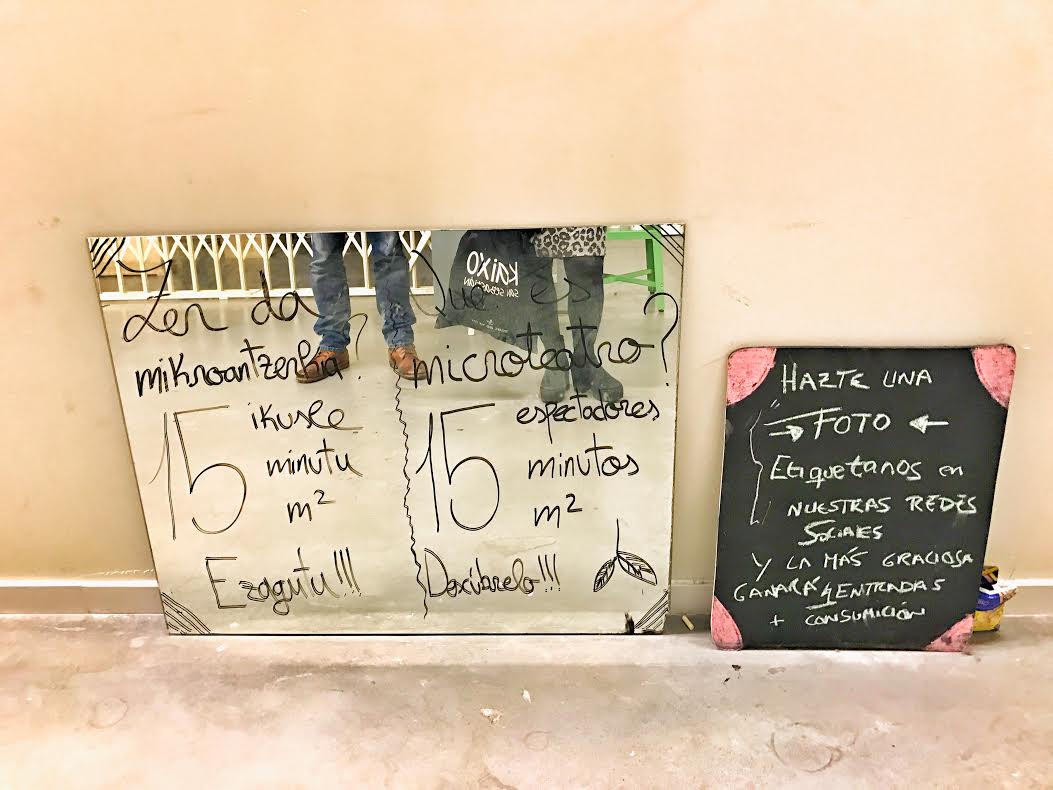 Zer da
mikroantzerkia?
15 ikusle
minutu
m²
Ezagutu!!!
Qué es
microteatro?
15 espectadores
minutos
m²
Descúbrelo!!!
KAIXO
SAN SEBASTIÁN
HAZTE UNA
→ FOTO ←
Etiquetanos en
NUESTRAS REDES
SOCIALES
Y LA MÁS GRACIOSA
GANARÁ 4 ENTRADAS
+ CONSUMICIÓN